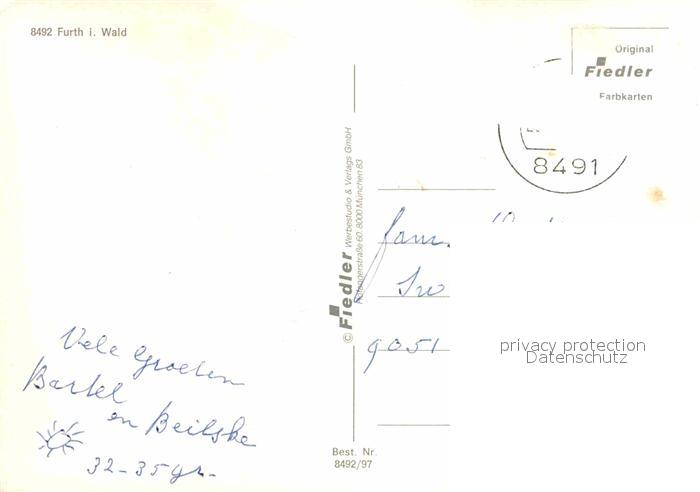 8492 Furth i. Wald
Original
Fiedler
Farbkarten
8491
© Fiedler Werbestudio & Verlags GmbH
60, 8000 München 83
Fam.
9051
privacy protection
Datenschutz
Vele Groeten
Bartel
en Beitske
32-35 gr.
Best. Nr.
8492/97